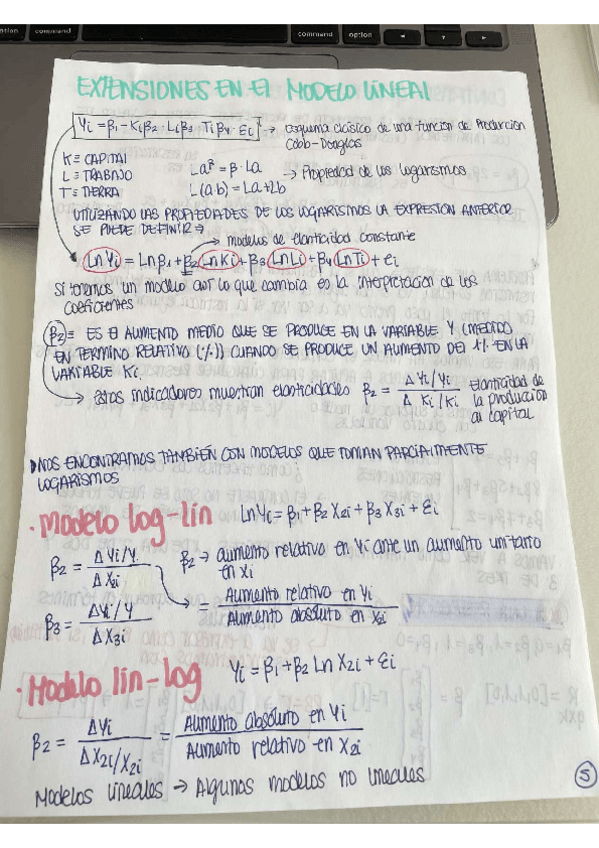 option
command
command
option
EXTENSIONES EN El MODELO LINEAL
Yi = β1 - Kiβ2 · Liβ3 · Tiβ4 · Ei → esquema clásico de una función de Producción
Cobb-Douglas
K = CAPITAL
L = TRABAJO
T = TIERRA
La^β = β · La
L(a b) = La + Lb
→ Propiedad de los logarismos
UTILIZANDO LAS PROPIEDADES DE LOS LOGARISMOS LA EXPRESION ANTERIOR
SE PUEDE DEFINIR →
→ modelos de elasticidad constante
Ln Yi = Ln β1 + β2 Ln Ki + β3 Ln Li + β4 Ln Ti + Ei
Si tenemos un modelo así lo que cambia es la interpretación de los
coeficientes
β2 = ES El AUMENTO MEDIO QUE SE PRODUCE EN LA VARIABLE Y (MEDIDO
EN TERMINO RELATIVO (%)) CUANDO SE PRODUCE UN AUMENTO DEl 1% EN LA
VARIABLE Ki.
→ Estos indicadores muestran elasticidades β2 = Δ Yi/Yi / Δ Ki/Ki
Elasticidad de
la produccion
al capital
NOS ENCONTRAMOS TAMBIÉN CON MODELOS QUE TOMAN PARCIALMENTE
LOGARISMOS
· Modelo log-lin Ln Yi = β1 + β2 X2i + β3 X3i + Ei
β2 = Δ Yi/Y / Δ X2i
β2 → aumento relativo en Yi ante un aumento unitario
en Xi
= Aumento relativo en Yi / Aumento absoluto en X2i
β3 = ΔYi/Y / Δ X3i
· Modelo lin-log Yi = β1 + β2 Ln X2i + Ei
β2 = ΔYi / Δ X2i/X2i = Aumento absoluto en Yi / Aumento relativo en X2i
Modelos lineales → Algunos modelos no lineales
5